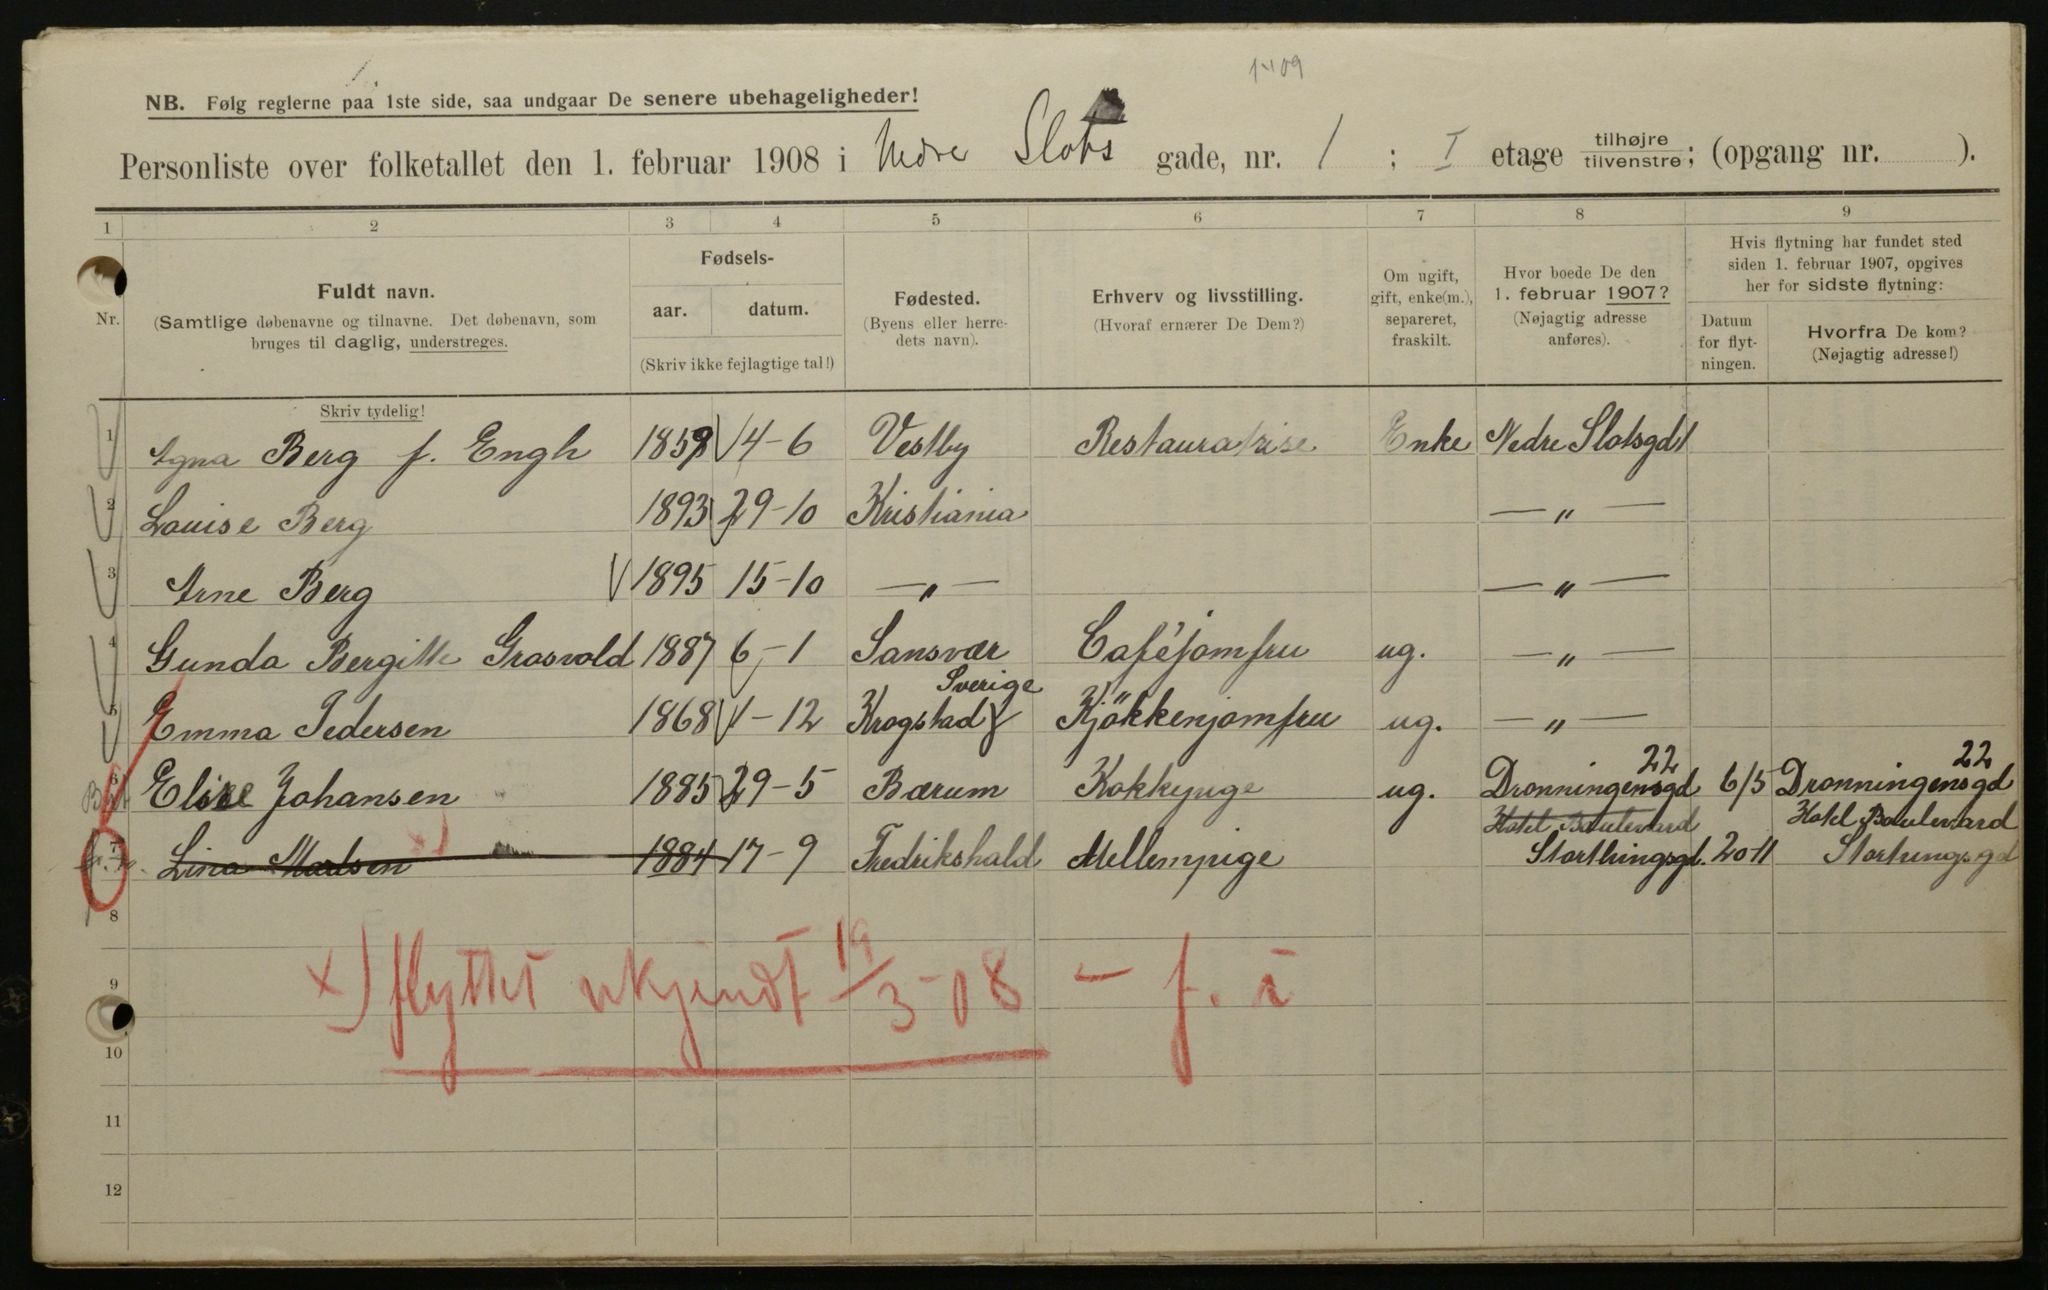 1409
NB. Følg reglerne paa 1ste side, saa undgaar De senere ubehageligheder!
Personliste over folketallet den 1. februar 1908 i Nedre Slots gade, nr. 1 ; I etage tilhøjre/tilvenstre; (opgang nr. ).
1 2 3 4 5 6 7 8 9
Nr.
Fuldt navn.
(Samtlige døbenavne og tilnavne. Det døbenavn, som
bruges til daglig, understreges.
Skriv tydelig!
Fødsels-
aar. datum.
(Skriv ikke fejlagtige tal!)
Fødested.
(Byens eller herre-
dets navn).
Erhverv og livsstilling.
(Hvoraf ernærer De Dem?)
Om ugift,
gift, enke(m.),
separeret,
fraskilt.
Hvor boede De den
1. februar 1907?
(Nøjagtig adresse
anføres).
Hvis flytning har fundet sted
siden 1. februar 1907, opgives
her for sidste flytning:
Datum
for flyt-
ningen.
Hvorfra De kom?
(Nøjagtig adresse!)
1 Agna Berg f. Engh 1859 14-6 Vestby Restauratrise Enke Nedre Slotsgd 1
2 Louise Berg 1893 29-10 Kristiania — " —
3 Arne Berg 1895 15-10 — " — — " —
4 Gunda Bergitte Grasvold 1887 6-1 Sansvær Caféjomfru ug. — " —
Sverige
5 Emma Pedersen 1868 1-12 Krogstad Kjökkenjomfru ug. — " —
22 22
6 Elise Johansen 1885 29-5 Bærum Kokkepige ug. Dronningensgd 6/5 Dronningensgd
Hotel Boulevard Hotel Boulevard
7 Lina Madsen 1884 17-9 Fredrikshald Mellempige Storthingsgd. 20-11 Stortingsgd
8
x) flyttet ukjendt 19/3-08 - f. i
9
10
11
12